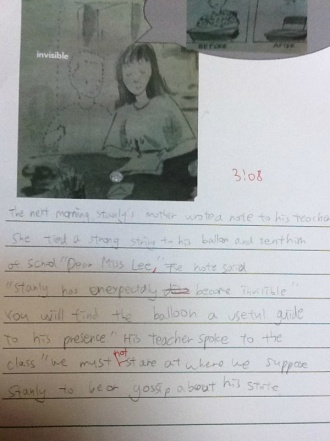 BEFORE AFTER
invisible
3:08
The next morning Stanly's mother wrote a note to his teacher
She tied a strong string to his ballon and sent him
of schol "Dear Miss Lee," The note said
"Stanly has unexpectedly become invisible"
You will find the balloon a useful guide
to his presence" His teacher spoke to the
class "we must not stare at where we suppose
Stanly to be or gossip about his state